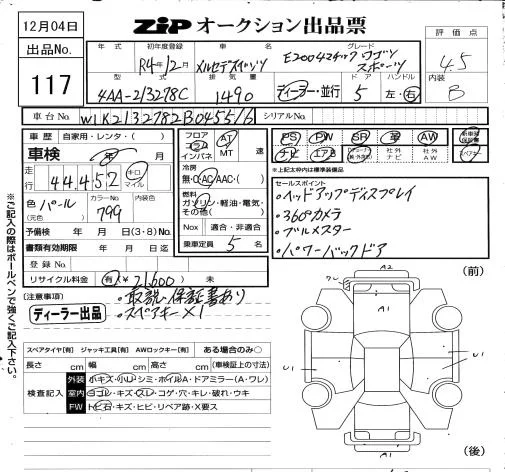 12月04日
ZIPオークション出品票
出品No.
117
年式
初年度登録
車名
グレード
評価点
R4年12月
メルセデスベンツ
E200 4マチック ワゴン
スポーツ
4.5
型式
排気量
ドア
ハンドル
内装
4AA-213278C
1490
ディーラー・並行
5
左・右
B
車台No.
W1K2132782B045516
シリアルNo.
車歴
自家用・レンタ・( )
車検
年 月
走行
44,452
キロ
マイル
色
パール
(元色)
カラーNo.
799
内装色
予備検 年 月 日(3・8)No.
書類有効期限 年 月 日迄
登録No.
リサイクル料金
有
¥21600
未
フロア
コラム
インパネ
AT
MT
速
冷房
無・AC・AAC・( )
燃料
ガソリン・軽油・電気・
その他( )
Nox
適合・非適合
乗車定員
5
名
PS
PW
SR
革
AW
ナビ
エアB
社外
ナビ
社外
AW
※上記太枠内は標準装備品
セールスポイント
・ヘッドアップディスプレイ
・360°カメラ
・ブルメスター
・パワーバックドア
(注意事項)
・取説・保証書あり
・スペアキー×1
ディーラー出品
スペアタイヤ[有] ジャッキ工具[有] AWロックキー[有] ある場合のみ○
長さ cm 幅 cm 高さ cm (車検証上の寸法)
検査記入
外装
小キズ・小U・シミ・ホイルA・ドアミラー(A・ワレ)
室内
ヨゴレ・キズ・スレ・コゲ・穴・キレ・破れ・ウキ
FW
トビ石・キズ・ヒビ・リペア跡・X要ス
※ご記入の際はボールペンで強くご記入下さい。
(前)
A2
A1
U1
U1
A1
(後)